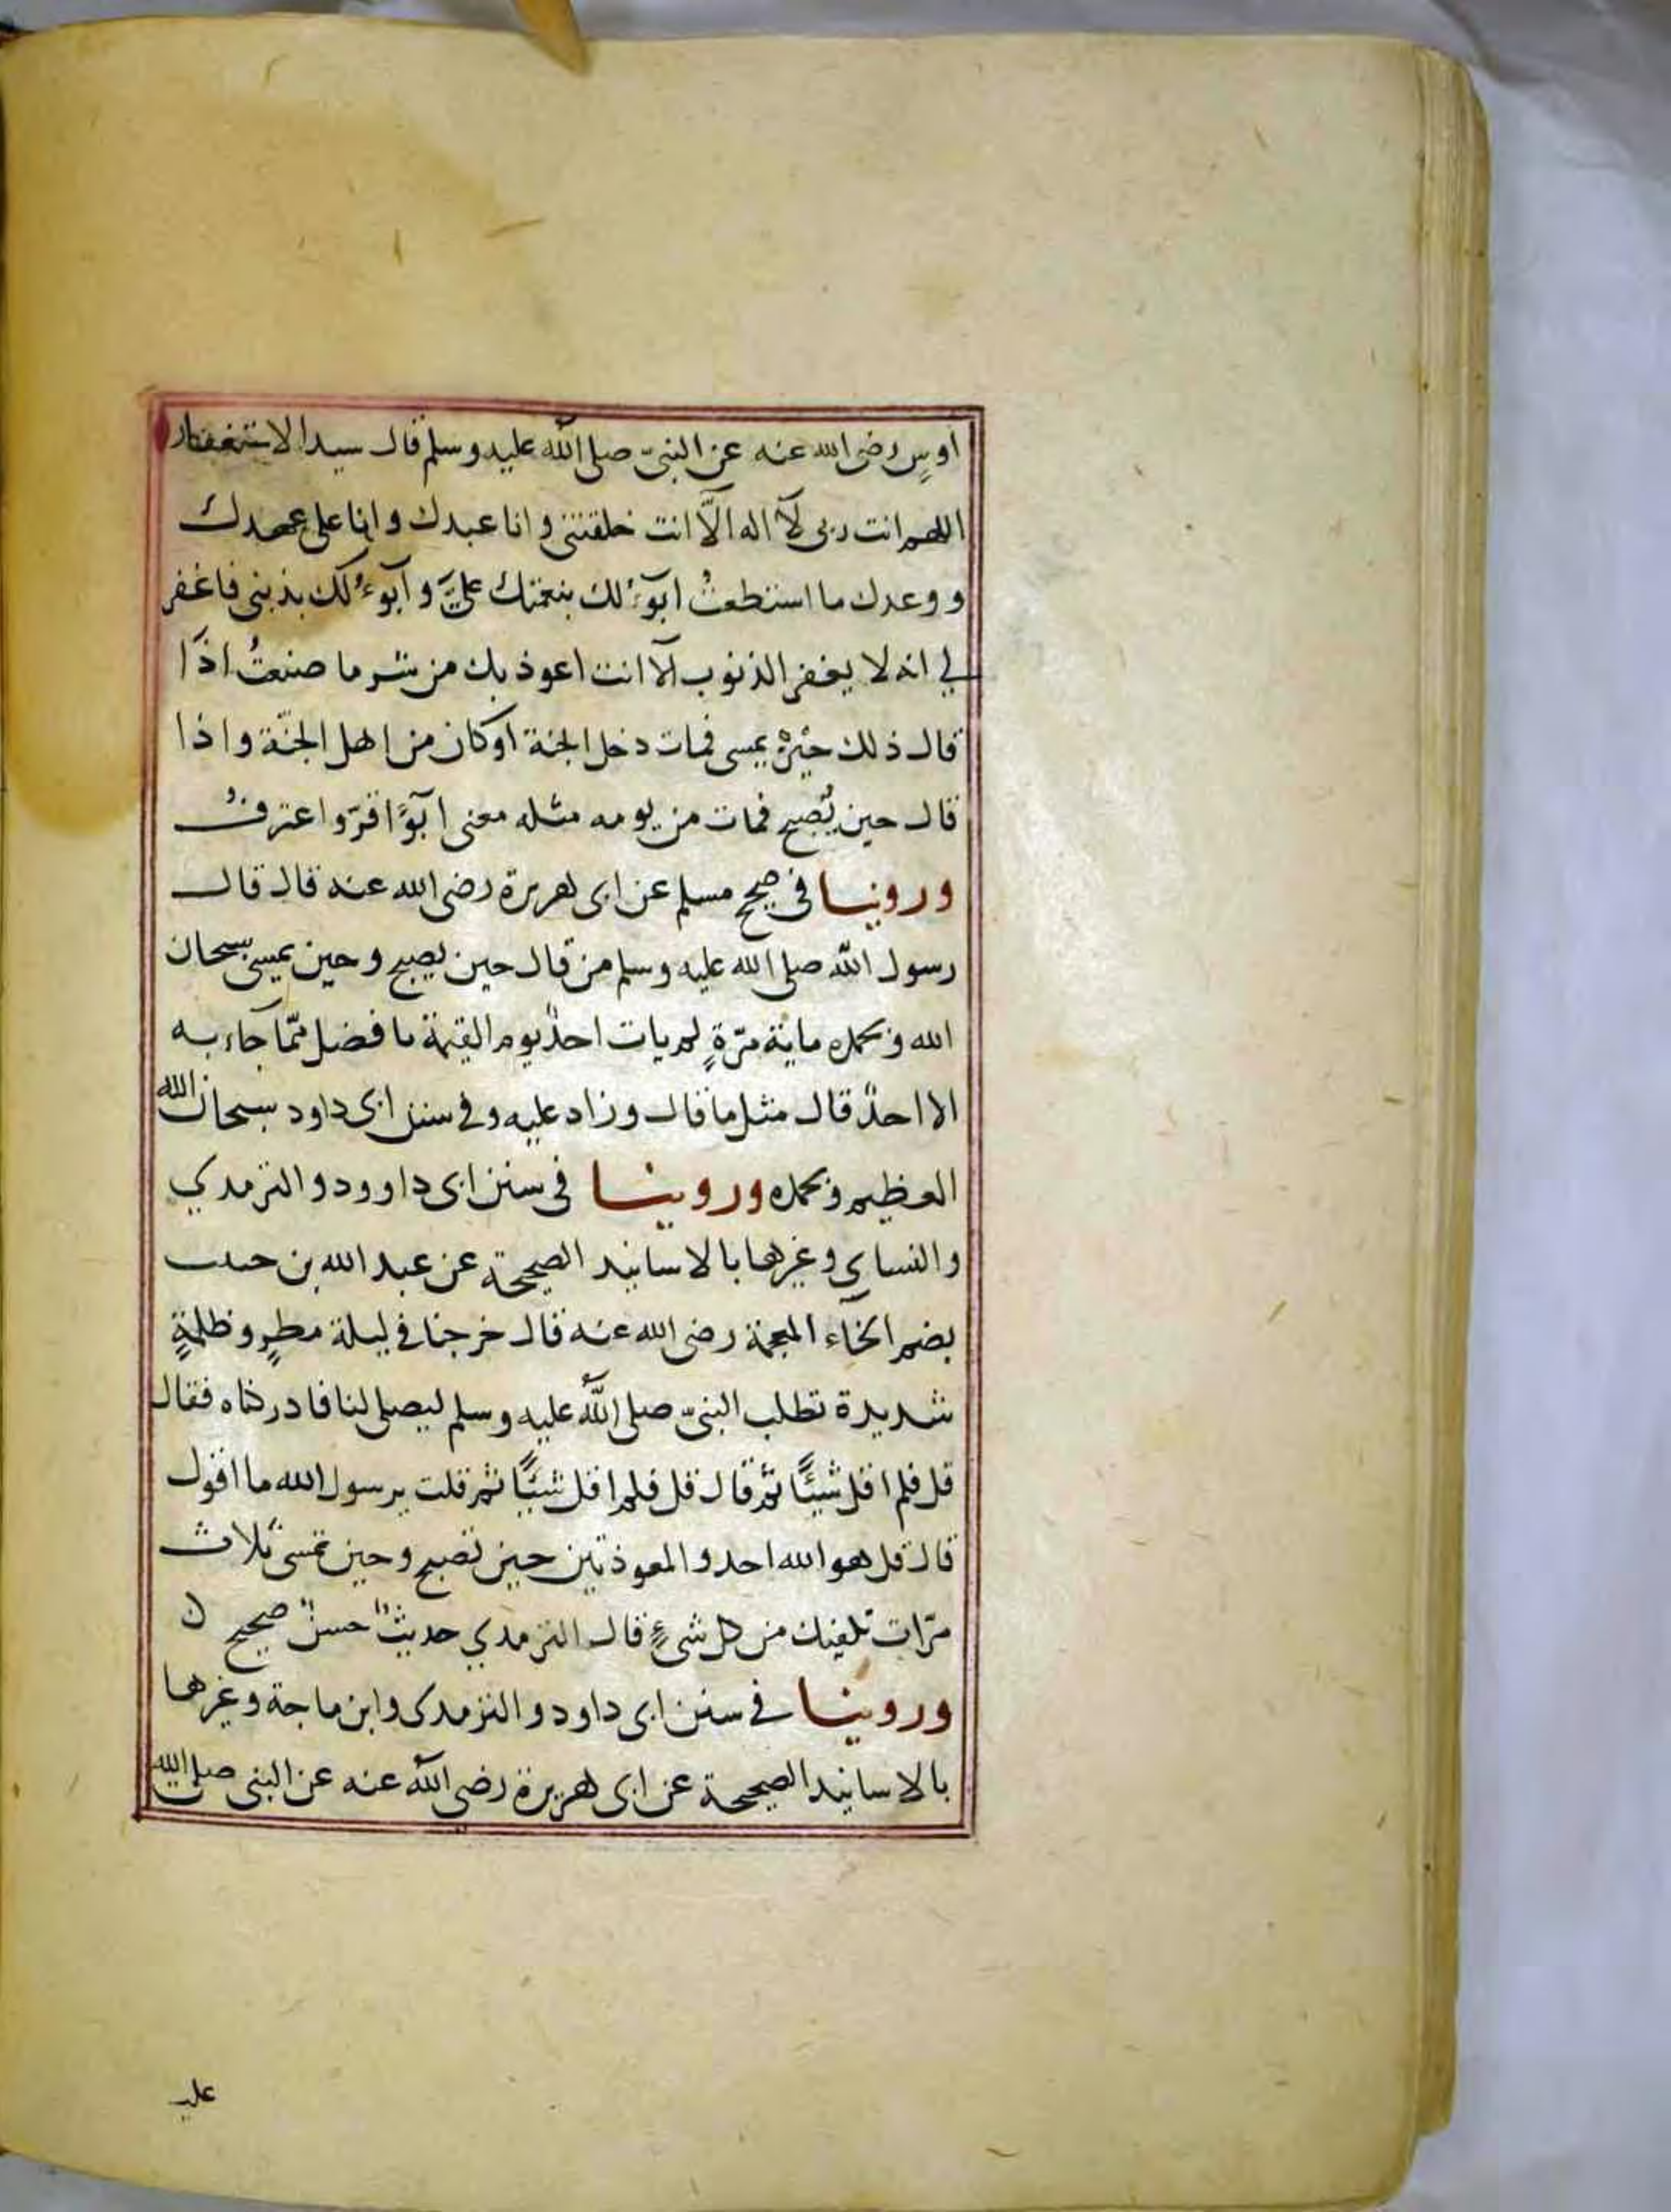 اوسٍ رضى الله عنه عن النبىّ صلى الله عليه وسلم قال سيد الاستغفار
اللهم انت ربى لآ اله الّا انت خلقتنى وانا عبدك وانا على عهدك
ووعدك ما استطعتُ ابوٓءُ لك بنعمتك علىَّ وابوٓءُ لك بذنبى فاغفر
لي انه لا يغفر الذنوب الّا انت اعوذ بك من شر ما صنعتُ اذا
قال ذلك حين يمسى فمات دخل الجنة اوكان من اهل الجنّة واذا
قال حين يُصبح فمات من يومه مثله معنى ابوٓءُ اقرّ واعترفُ
وروينا فى صحيح مسلم عن ابى هريرة رضى الله عنه قال قال
رسول الله صلى الله عليه وسلم من قال حين يصبح وحين يمسى سبحان
الله وبحمده ماية مرّةٍ لم يات احدٌ يوم القيمة بافضل ممّا جاء به
الا احدٌ قال مثل ما قال وزاد عليه وفى سنن ابى داود سبحان الله
العظيم وبحمده وروينا فى سنن ابى داوود والترمدي
والنساى وغيرها بالاسانيد الصحيحة عن عبد الله بن حبيب
بضم الخآء المعجمة رضى الله عنه قال خرجنا فى ليلة مطرٍ وظلمةٍ
شديدة نطلب النبىّ صلى الله عليه وسلم ليصلى لنا فادركناه فقال
قل فلم اقل شيئًا ثم قال قل فلم اقل شيئًا ثم قلت يرسول الله ما اقول
قال قل هو الله احد والمعوذتين حين تصبح وحين تمسى ثلاث
مرّات تكفيك من كل شىءٍ قال الترمدي حديثٌ حسنٌ صحيح ن
وروينا فى سنن ابى داود والترمدى وابن ماجة وغيرها
بالاسانيد الصحيحة عن ابى هريرة رضى الله عنه عن النبى صلى الله
عليه